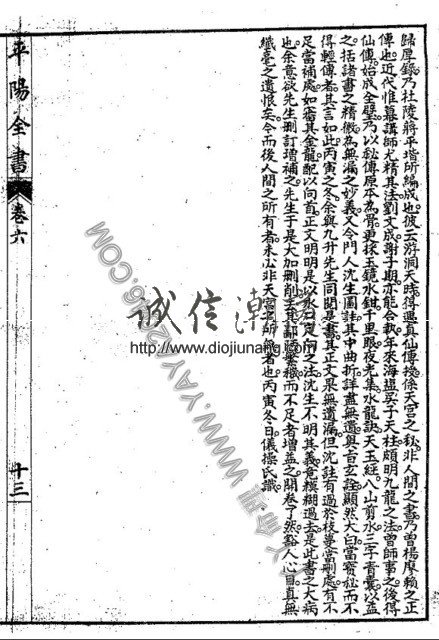 歸厚錄乃杜陵蔣平堦所編成也彼云游洞天時得遇真仙傳授係天宮之秘非人間之書乃曾楊廖賴之正
傳也近代惟幕講師尤精其法劉文成謝子期亦能合執年來海塩梁子天柱頗明九龍之法曾師事之後得
仙傳始成全璧乃以秘傳原本為骨更採玉鏡水鉗千里眼夜光集水龍訣天玉經八山剪水三字青囊以益
之括諸書之精微為無漏之妙義又令門人沈生圖註其中曲折詳盡無遺奧旨玄詮顯然大白當寶秘而不
得輕傳者其言如此丙寅之冬余與九升先生同閱是書其正文果無遺漏但沈註有過於枝蔓當刪處有不
足當補處如番其金龍配以向首正文明明是以水口定向之法沈生不明其義竟糢糊過去是此書之大病
也余意欲先生刪訂增補之先生于是大加刪削去其鄙陋繁襍而不足者增益之開卷了然豁人心目真無
纖毫之遺恨矣今而後人間之所有者未必非天宮之所無者也丙寅冬日儀操氏識
平陽全書
卷六
十三
誠信
http://www.diojiunang.com
WWW.YAYA26.COM